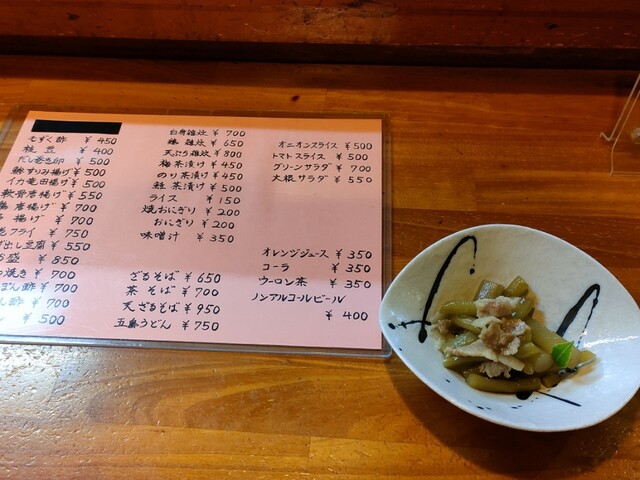 もずく酢 ￥450
枝豆 ￥400
だし巻き卵 ￥500
すりみ揚げ ￥500
イカ竜田揚げ ￥500
軟骨唐揚げ ￥550
唐揚げ ￥700
揚げ ￥700
フライ ￥750
出し豆腐 ￥550
盛 ￥850
焼き ￥700
ぽん酢 ￥700
酢 ￥700
￥500
白身雑炊 ￥700
雑炊 ￥650
天ぷら雑炊 ￥800
梅茶漬け ￥450
のり茶漬け ￥450
鮭茶漬け ￥500
ライス ￥150
焼おにぎり ￥200
おにぎり ￥200
味噌汁 ￥350
ざるそば ￥650
茶そば ￥700
天ざるそば ￥950
五島うどん ￥750
オニオンスライス ￥500
トマトスライス ￥500
グリーンサラダ ￥700
大根サラダ ￥550
オレンジジュース ￥350
コーラ ￥350
ウーロン茶 ￥350
ノンアルコールビール
￥400